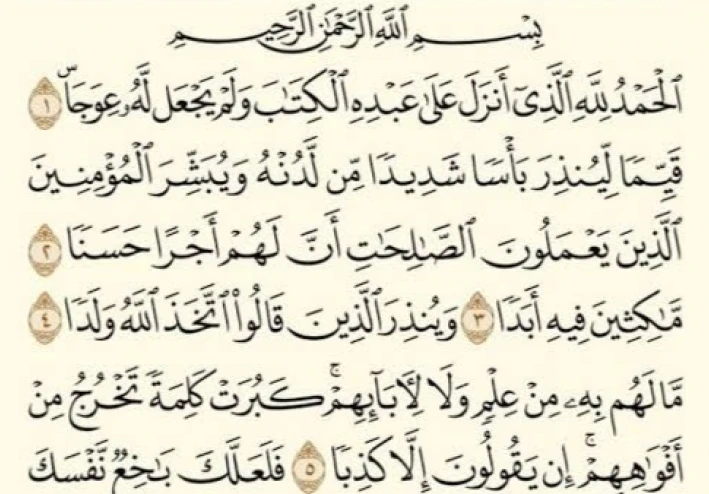 بِسْمِ ٱللَّهِ ٱلرَّحْمَٰنِ ٱلرَّحِيمِ
ٱلْحَمْدُ لِلَّهِ ٱلَّذِىٓ أَنزَلَ عَلَىٰ عَبْدِهِ ٱلْكِتَٰبَ وَلَمْ يَجْعَل لَّهُۥ عِوَجَاۜ ١
قَيِّمًا لِّيُنذِرَ بَأْسًا شَدِيدًا مِّن لَّدُنْهُ وَيُبَشِّرَ ٱلْمُؤْمِنِينَ
ٱلَّذِينَ يَعْمَلُونَ ٱلصَّٰلِحَٰتِ أَنَّ لَهُمْ أَجْرًا حَسَنًا ٢
مَّٰكِثِينَ فِيهِ أَبَدًا ٣ وَيُنذِرَ ٱلَّذِينَ قَالُوا۟ ٱتَّخَذَ ٱللَّهُ وَلَدًا ٤
مَّا لَهُم بِهِۦ مِنْ عِلْمٍ وَلَا لِءَابَآئِهِمْ ۚ كَبُرَتْ كَلِمَةً تَخْرُجُ مِنْ
أَفْوَٰهِهِمْ ۚ إِن يَقُولُونَ إِلَّا كَذِبًا ٥ فَلَعَلَّكَ بَٰخِعٌ نَّفْسَكَ